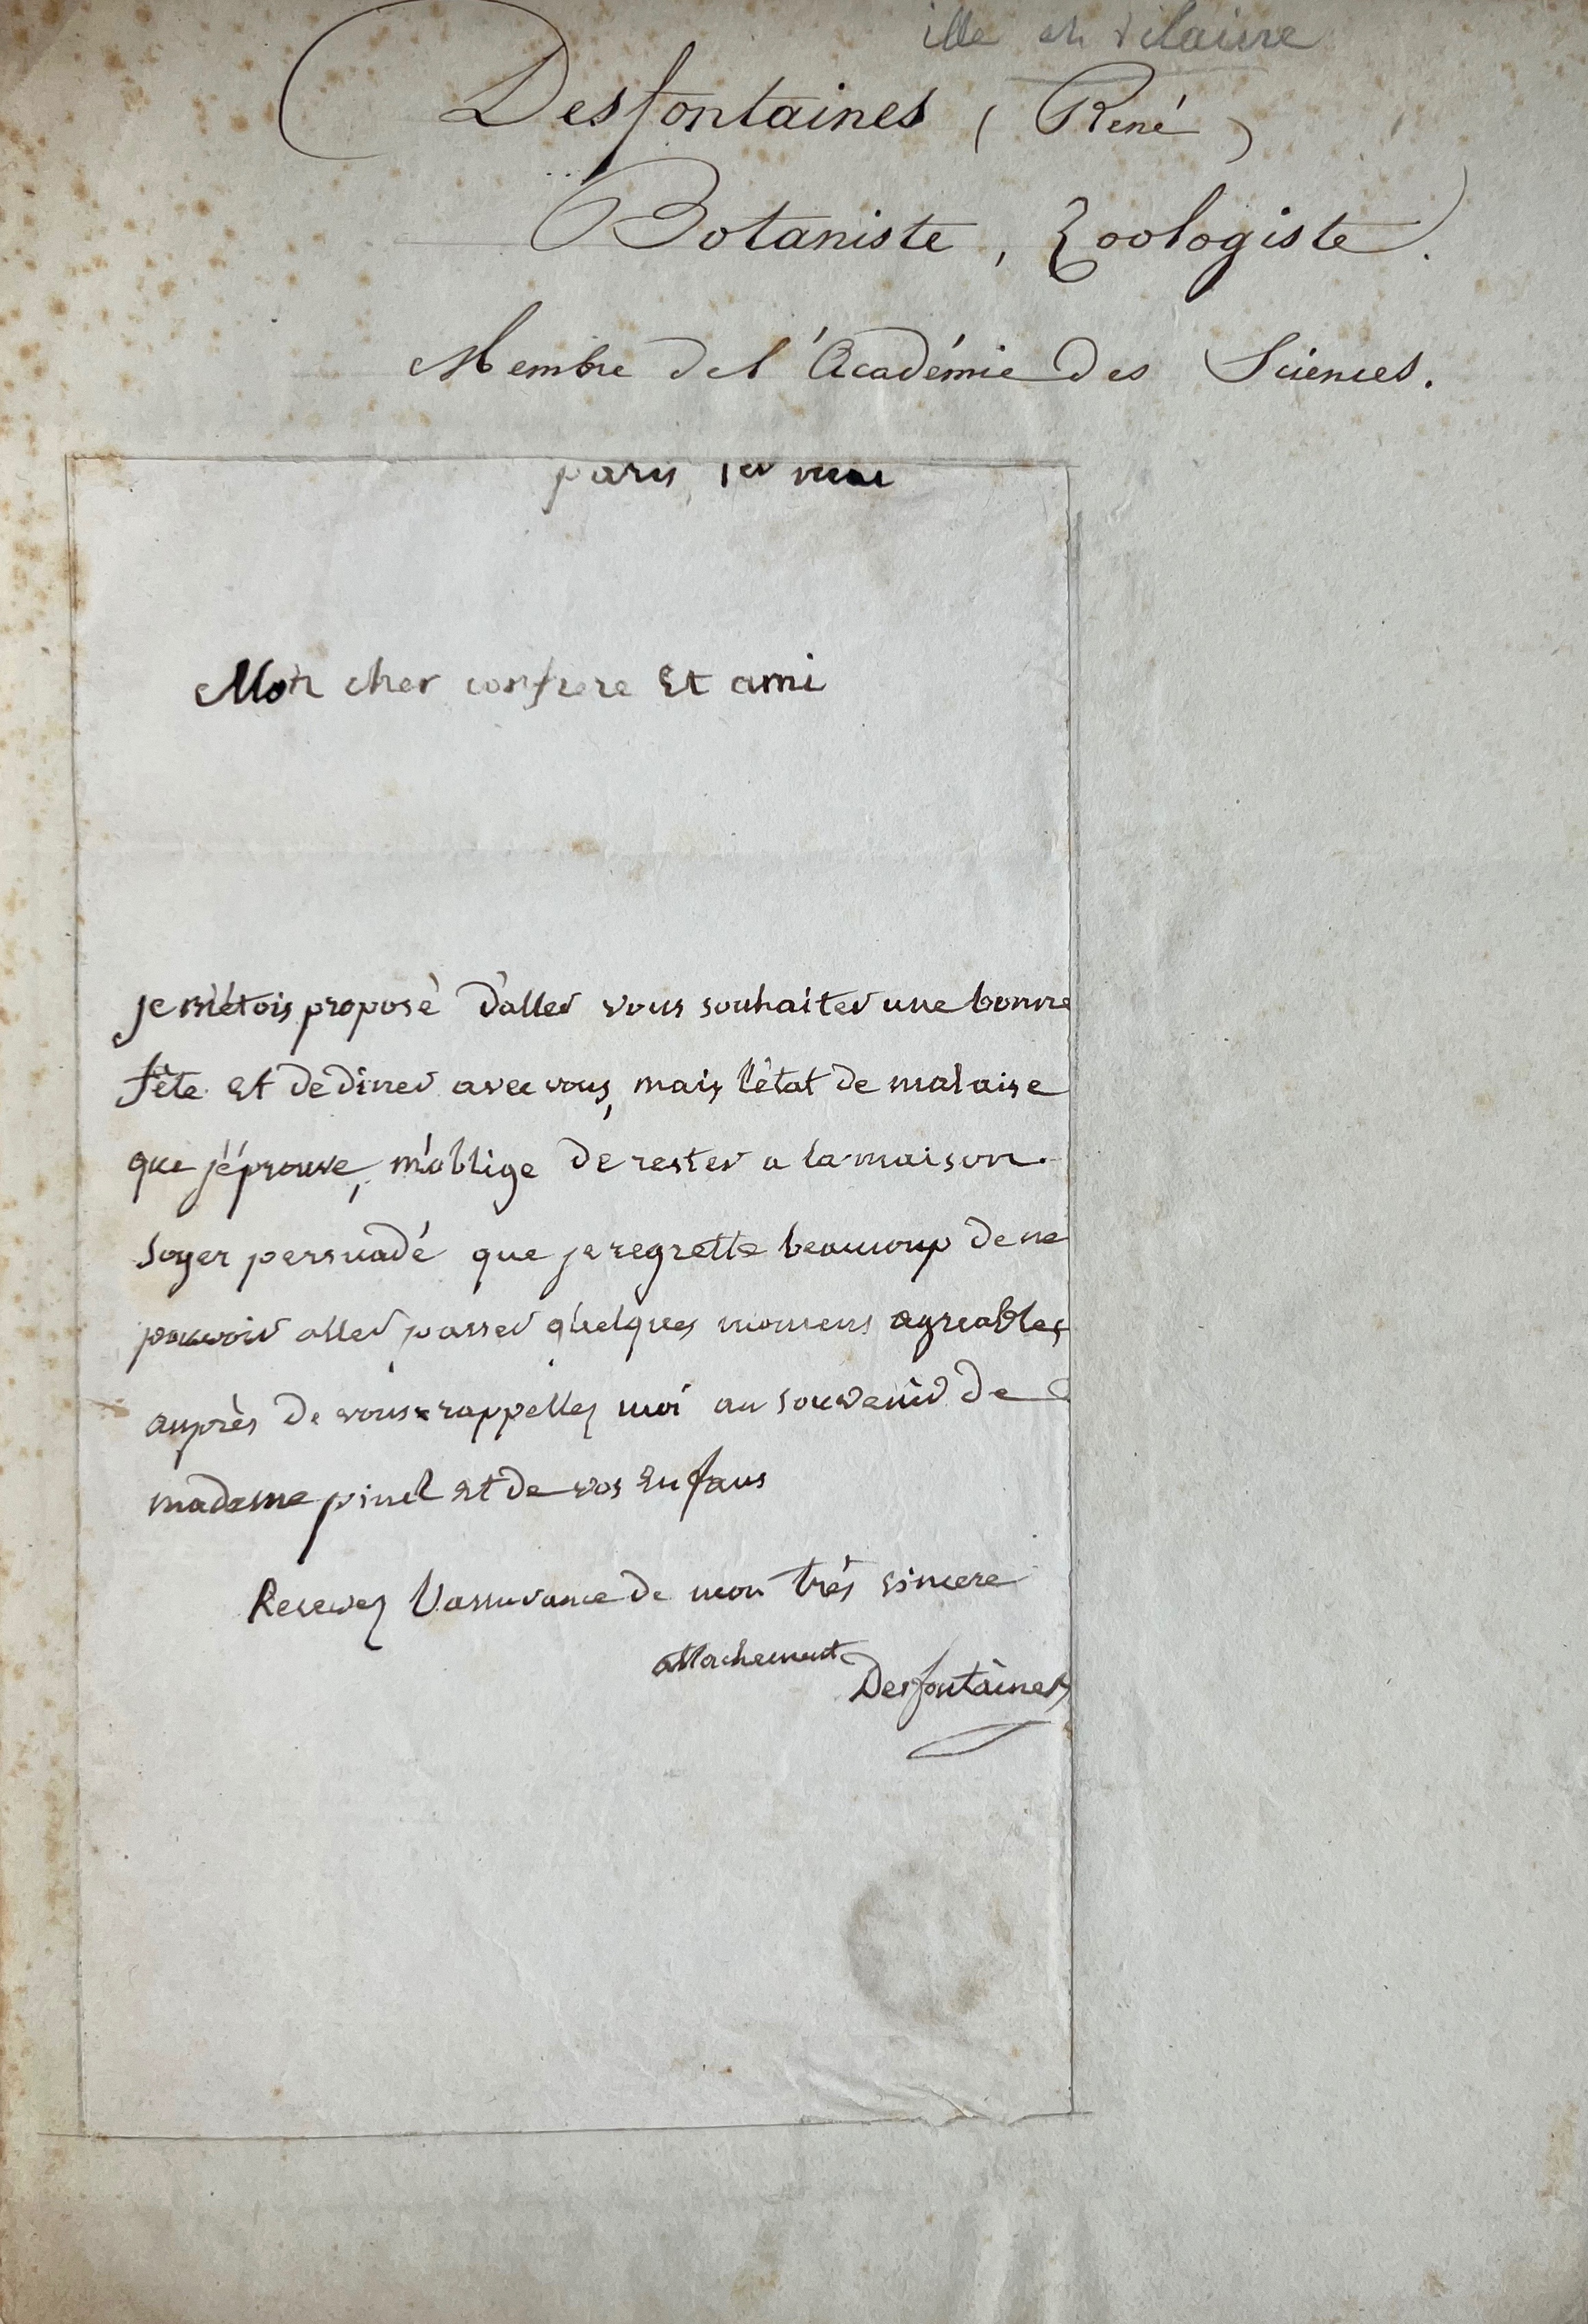 ille et vilaine
Desfontaines (René)
Botaniste, Zoologiste.
Membre de l'Académie des Sciences.
paris 1er mai
Mon cher confrere Et ami
je m'étois proposé d'aller vous souhaiter une bonne
fête et de diner avec vous, mais l'état de malaise
que j'éprouve, m'oblige de rester a la maison.
soyez persuadé que je regrette beaucoup de ne
pouvoir aller passer quelques momens agreables
auprès de vous rappellez moi au souvenir de
madame pinel et de vos Enfans
Recevez l'assurance de mon très sincere
attachement
Desfontaines